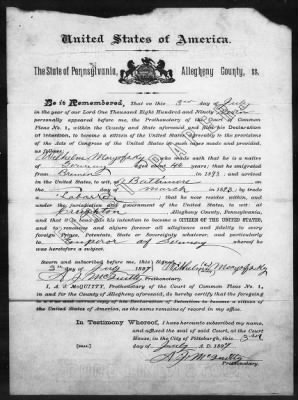 United States of America.
The State of Pennsylvania, Allegheny County, ss.
Be it Remembered, That on this 3rd day of July
in the year of our Lord One Thousand Eight Hundred and Ninety Seven
personally appeared before me, the Prothonotary of the Court of
Common Pleas No. 1, within the County and State aforesaid and files his Declaration
of Intention, to become a citizen of the United States thereby to the provisions
of the Acts of Congress of the United States in such cases made and provided
as follows:
Wilhelm made oath that he is a native
of Germany aged about years; that he emigrated
from Bremen in 1893; and arrived in the United
States, to wit, at Baltimore on
the of March in 1893; by trade
a Laborer that he now resides within, and
under the jurisdiction and government of the United States, to wit, at
Creighton Allegheny County, Pennsylvania,
and that he bona fide his intention to become a CITIZEN OF THE UNITED STATES, and
to renounce and abjure forever all allegiance and fidelity to every
Prince, Potentate, State or Sovereignty whatever, and particularly
to Emperor of Germany whereof he was
heretofore a subject.
Sworn and subscribed before me, this
3rd day of July 1897
Prothonotary.
I, Prothonotary of the Court of Common Pleas No. 1,
in and for the County of Allegheny aforesaid, do hereby certify that the foregoing
is a true and correct copy of the Declaration of Intention to become a Citizen of the
United States of America, as the same remains of record in my office.
In Testimony Whereof, I have hereunto subscribed my name,
and affixed the seal of said Court, at the Court
House, in the City of Pittsburgh, this 3rd
day of July A. D. 1897
[SEAL]
Prothonotary.